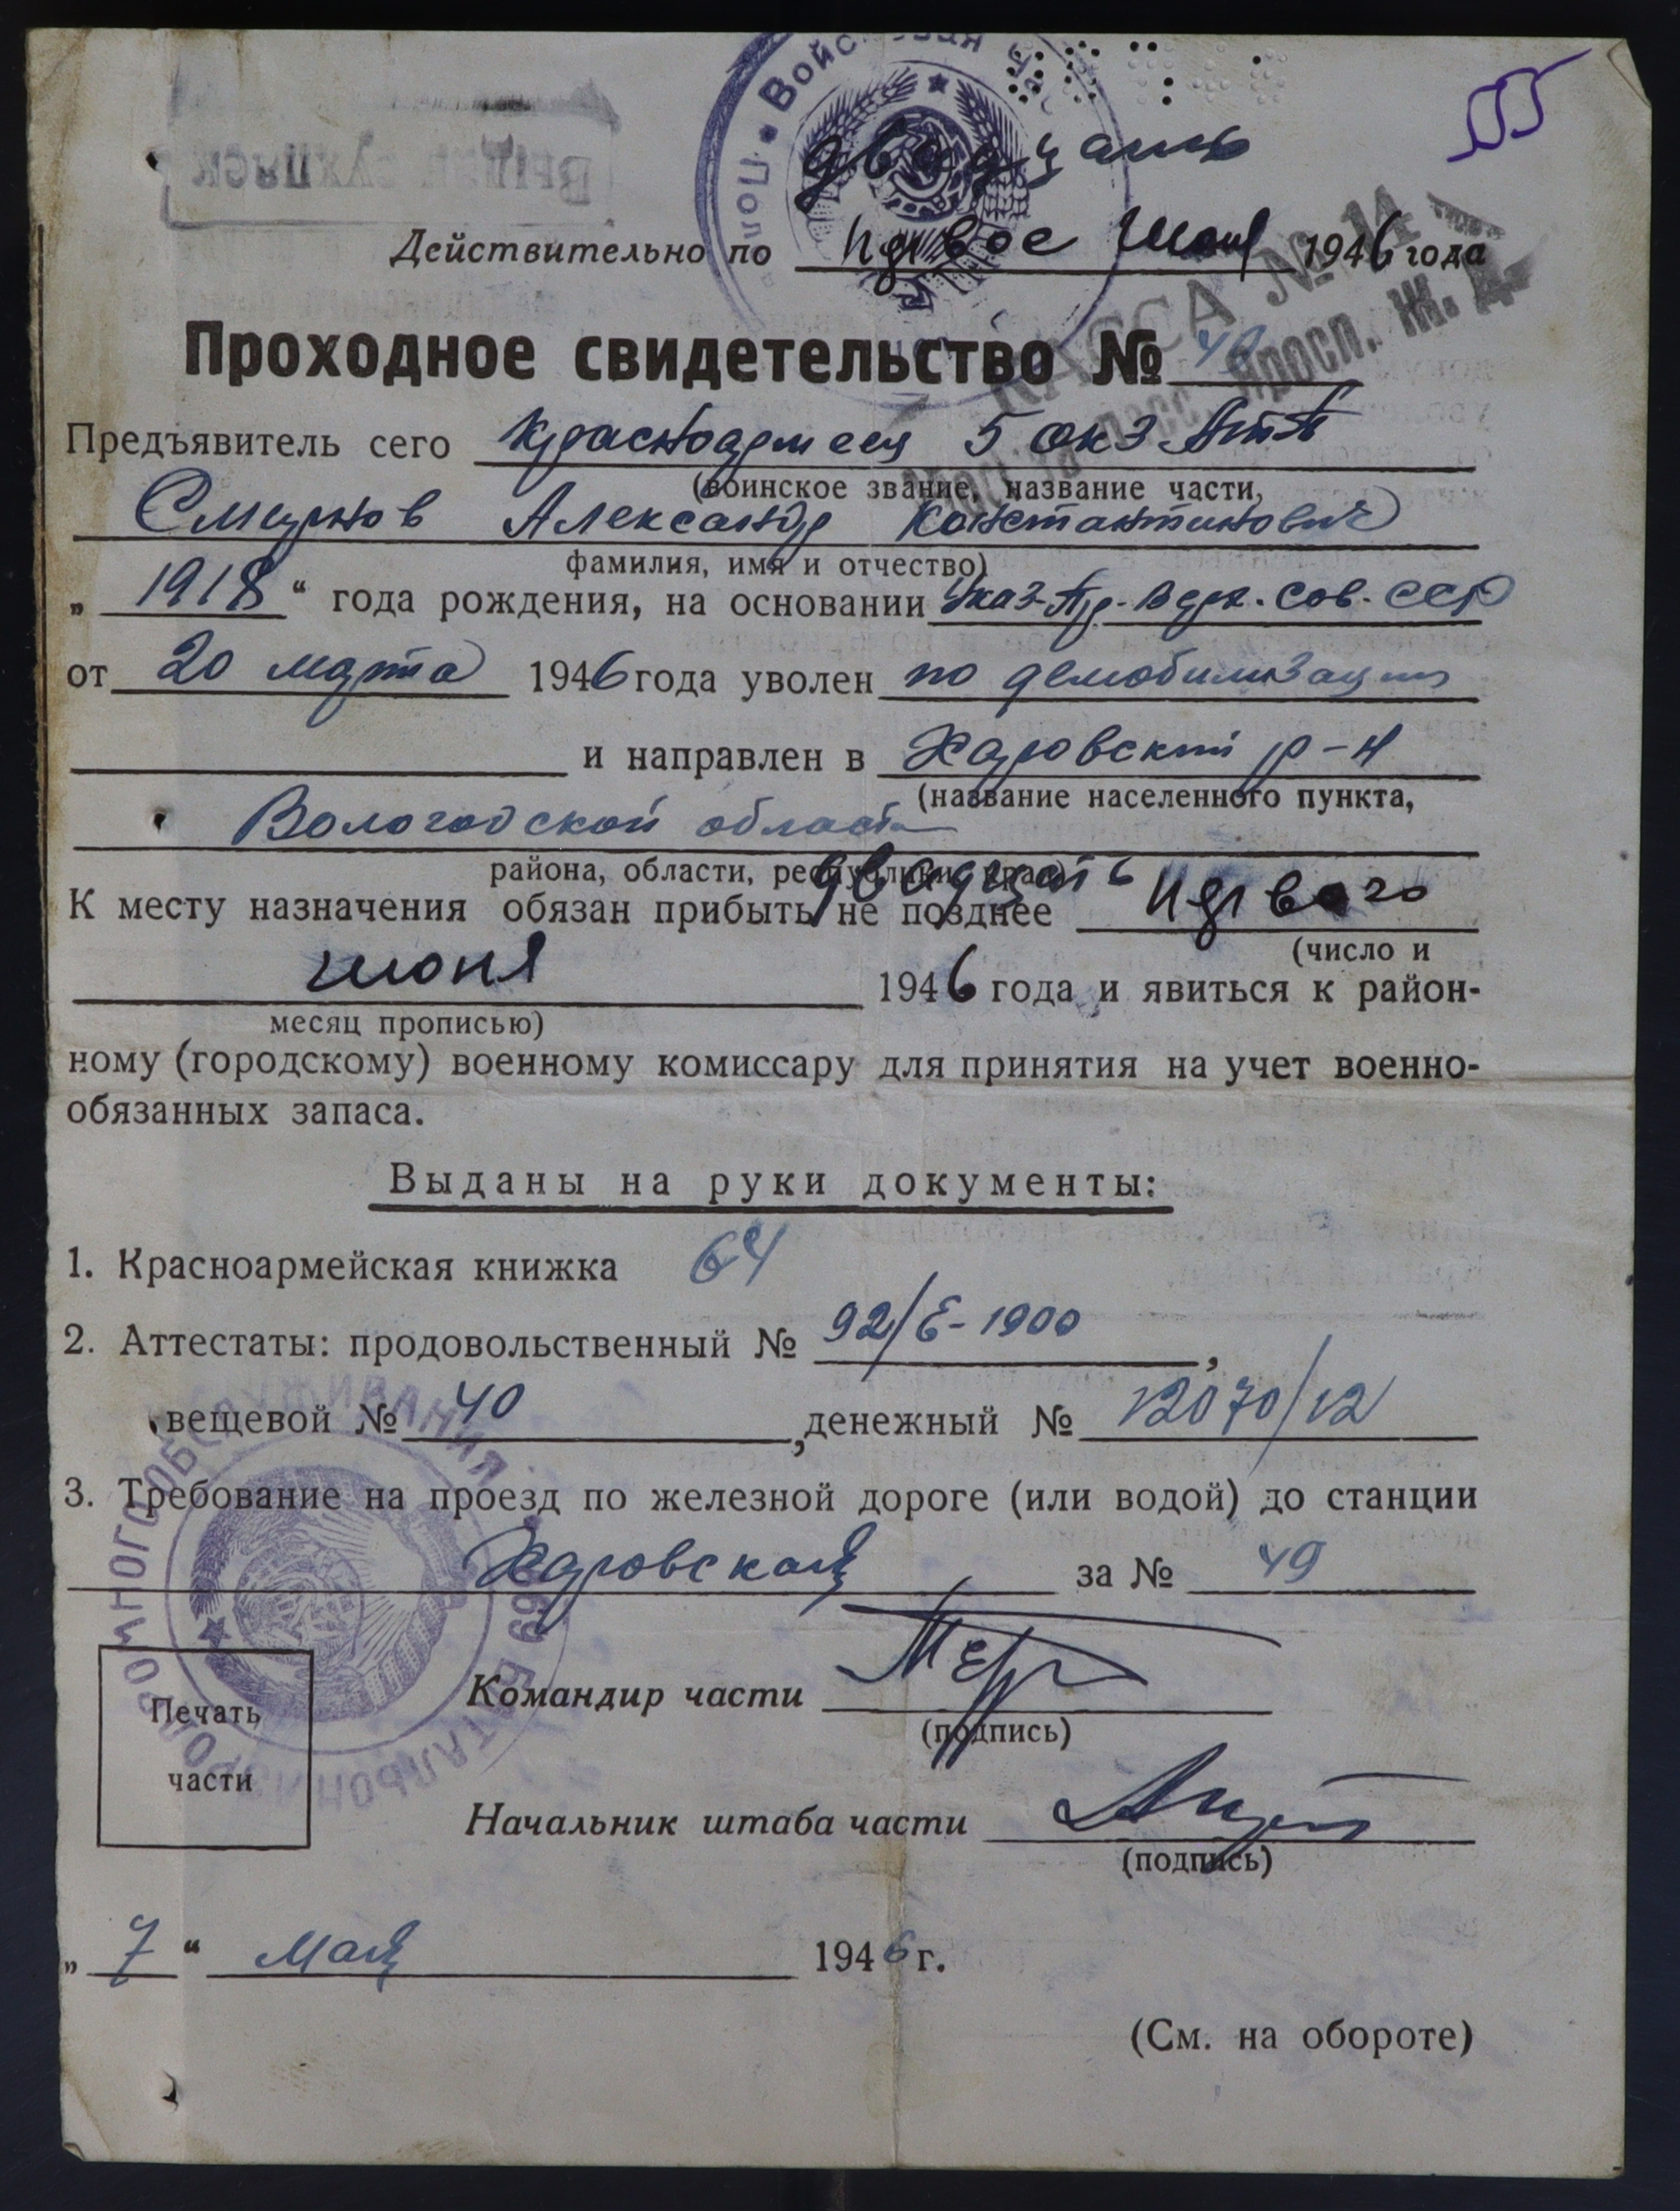 двадцать
Действительно по первое июня 1946 года
КАССА № 14
Моск. пасс. Яросл. Ж. Д.
Проходное свидетельство №
Предъявитель сего Красноармеец 5
(воинское звание, название части,
Смирнов Александр Константинович
фамилия, имя и отчество)
„ 1918 “ года рождения, на основании Указ. Пр. Верх. Сов. СССР
от 20 марта 1946 года уволен по демобилизации
и направлен в Харовский р-н
(название населенного пункта,
Вологодской области
района, области, республики, края)
двадцать
К месту назначения обязан прибыть не позднее первого
(число и
июня 1946 года и явиться к район-
месяц прописью)
ному (городскому) военному комиссару для принятия на учет военно-
обязанных запаса.
Выданы на руки документы:
1. Красноармейская книжка
2. Аттестаты: продовольственный № 92/Е-1900,
вещевой № 40, денежный № 12070/12
3. Требование на проезд по железной дороге (или водой) до станции
Харовская за № 49
Командир части
(подпись)
Печать
части
Начальник штаба части
(подпись)
„ 7 “ Мая 1946 г.
(См. на обороте)